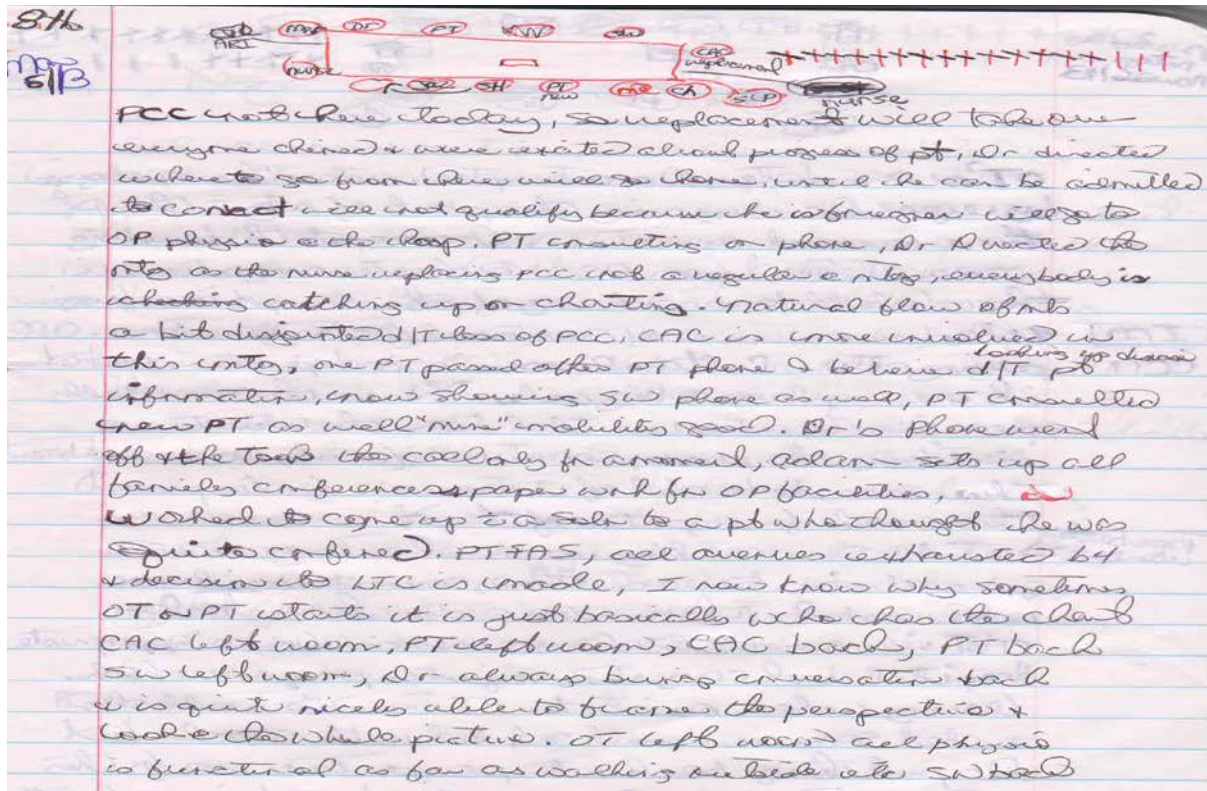 8th
May 6/13
ART Dr PT SW
nurse CAC replacement
SH PT new me Ch SLP nurse
PCC not here today, so replacement will take over
everyone chimed & were excited about progress of pt, Dr directed
where to go from here will go home, until he can be admitted
to connect will not qualify because he is foreigner will go to
OP physio @ the hosp. PT consulting on phone, Dr Directed the
mtg as the nurse replacing PCC not a regular @ mtg, everybody is
catching up on charting. Natural flow of mtg
a bit disjointed d/T loss of PCC, CAC is more involved in
this mtg, one PT passed other PT phone I believe d/T looking up disease pt
information, now showing SW phone as well, PT consulted
new PT as well "mine" mobility good. Dr's phone went
off & the took the call only for a moment, adam sets up all
family conferences & paper work for OP facilities,
worked to come up c a soln to a pt who thought he was
quite . PT FAS, all avenues exhausted b4
a decision to LTC is made, I now know why sometimes
OT or PT starts it is just basically who has the chart
CAC left room, PT left room, CAC back, PT back
SW left room, Dr always brings conversation back
& is quite nicely able to the perspective &
look @ the whole picture. OT left room all physio
is functional as far as walking outside etc SW back